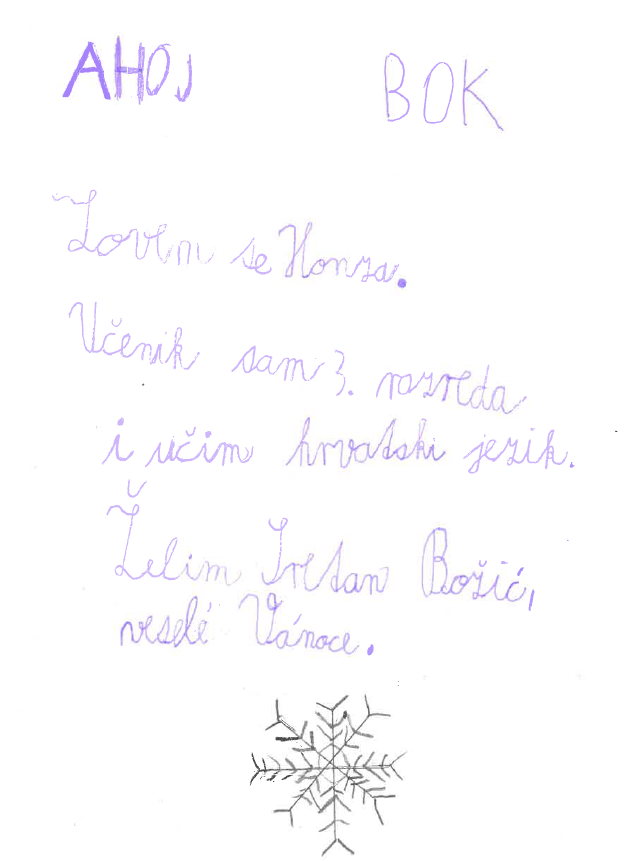 AHOJ BOK
Zovem se Honza.
Učenik sam 3. razreda
i učim hrvatski jezik.
Želim Sretan Božić,
veselé Vánoce.